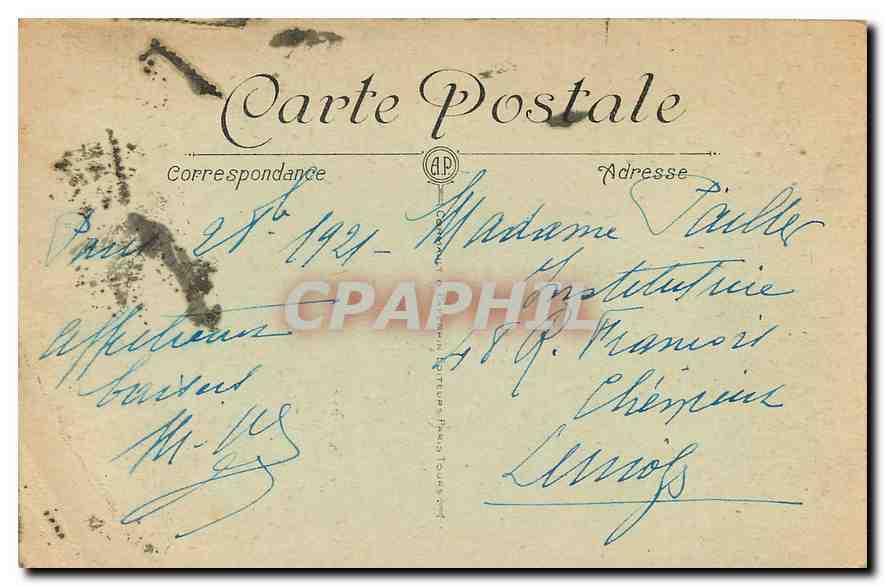 Carte Postale
Correspondance
A.P
Adresse
Paris 28 1921 -
Affectueux
baisers
Madame
Institutrice
48 R. François
Chénieux
Limoges
CPAPHIL
ÉDITEURS PARIS TOURS